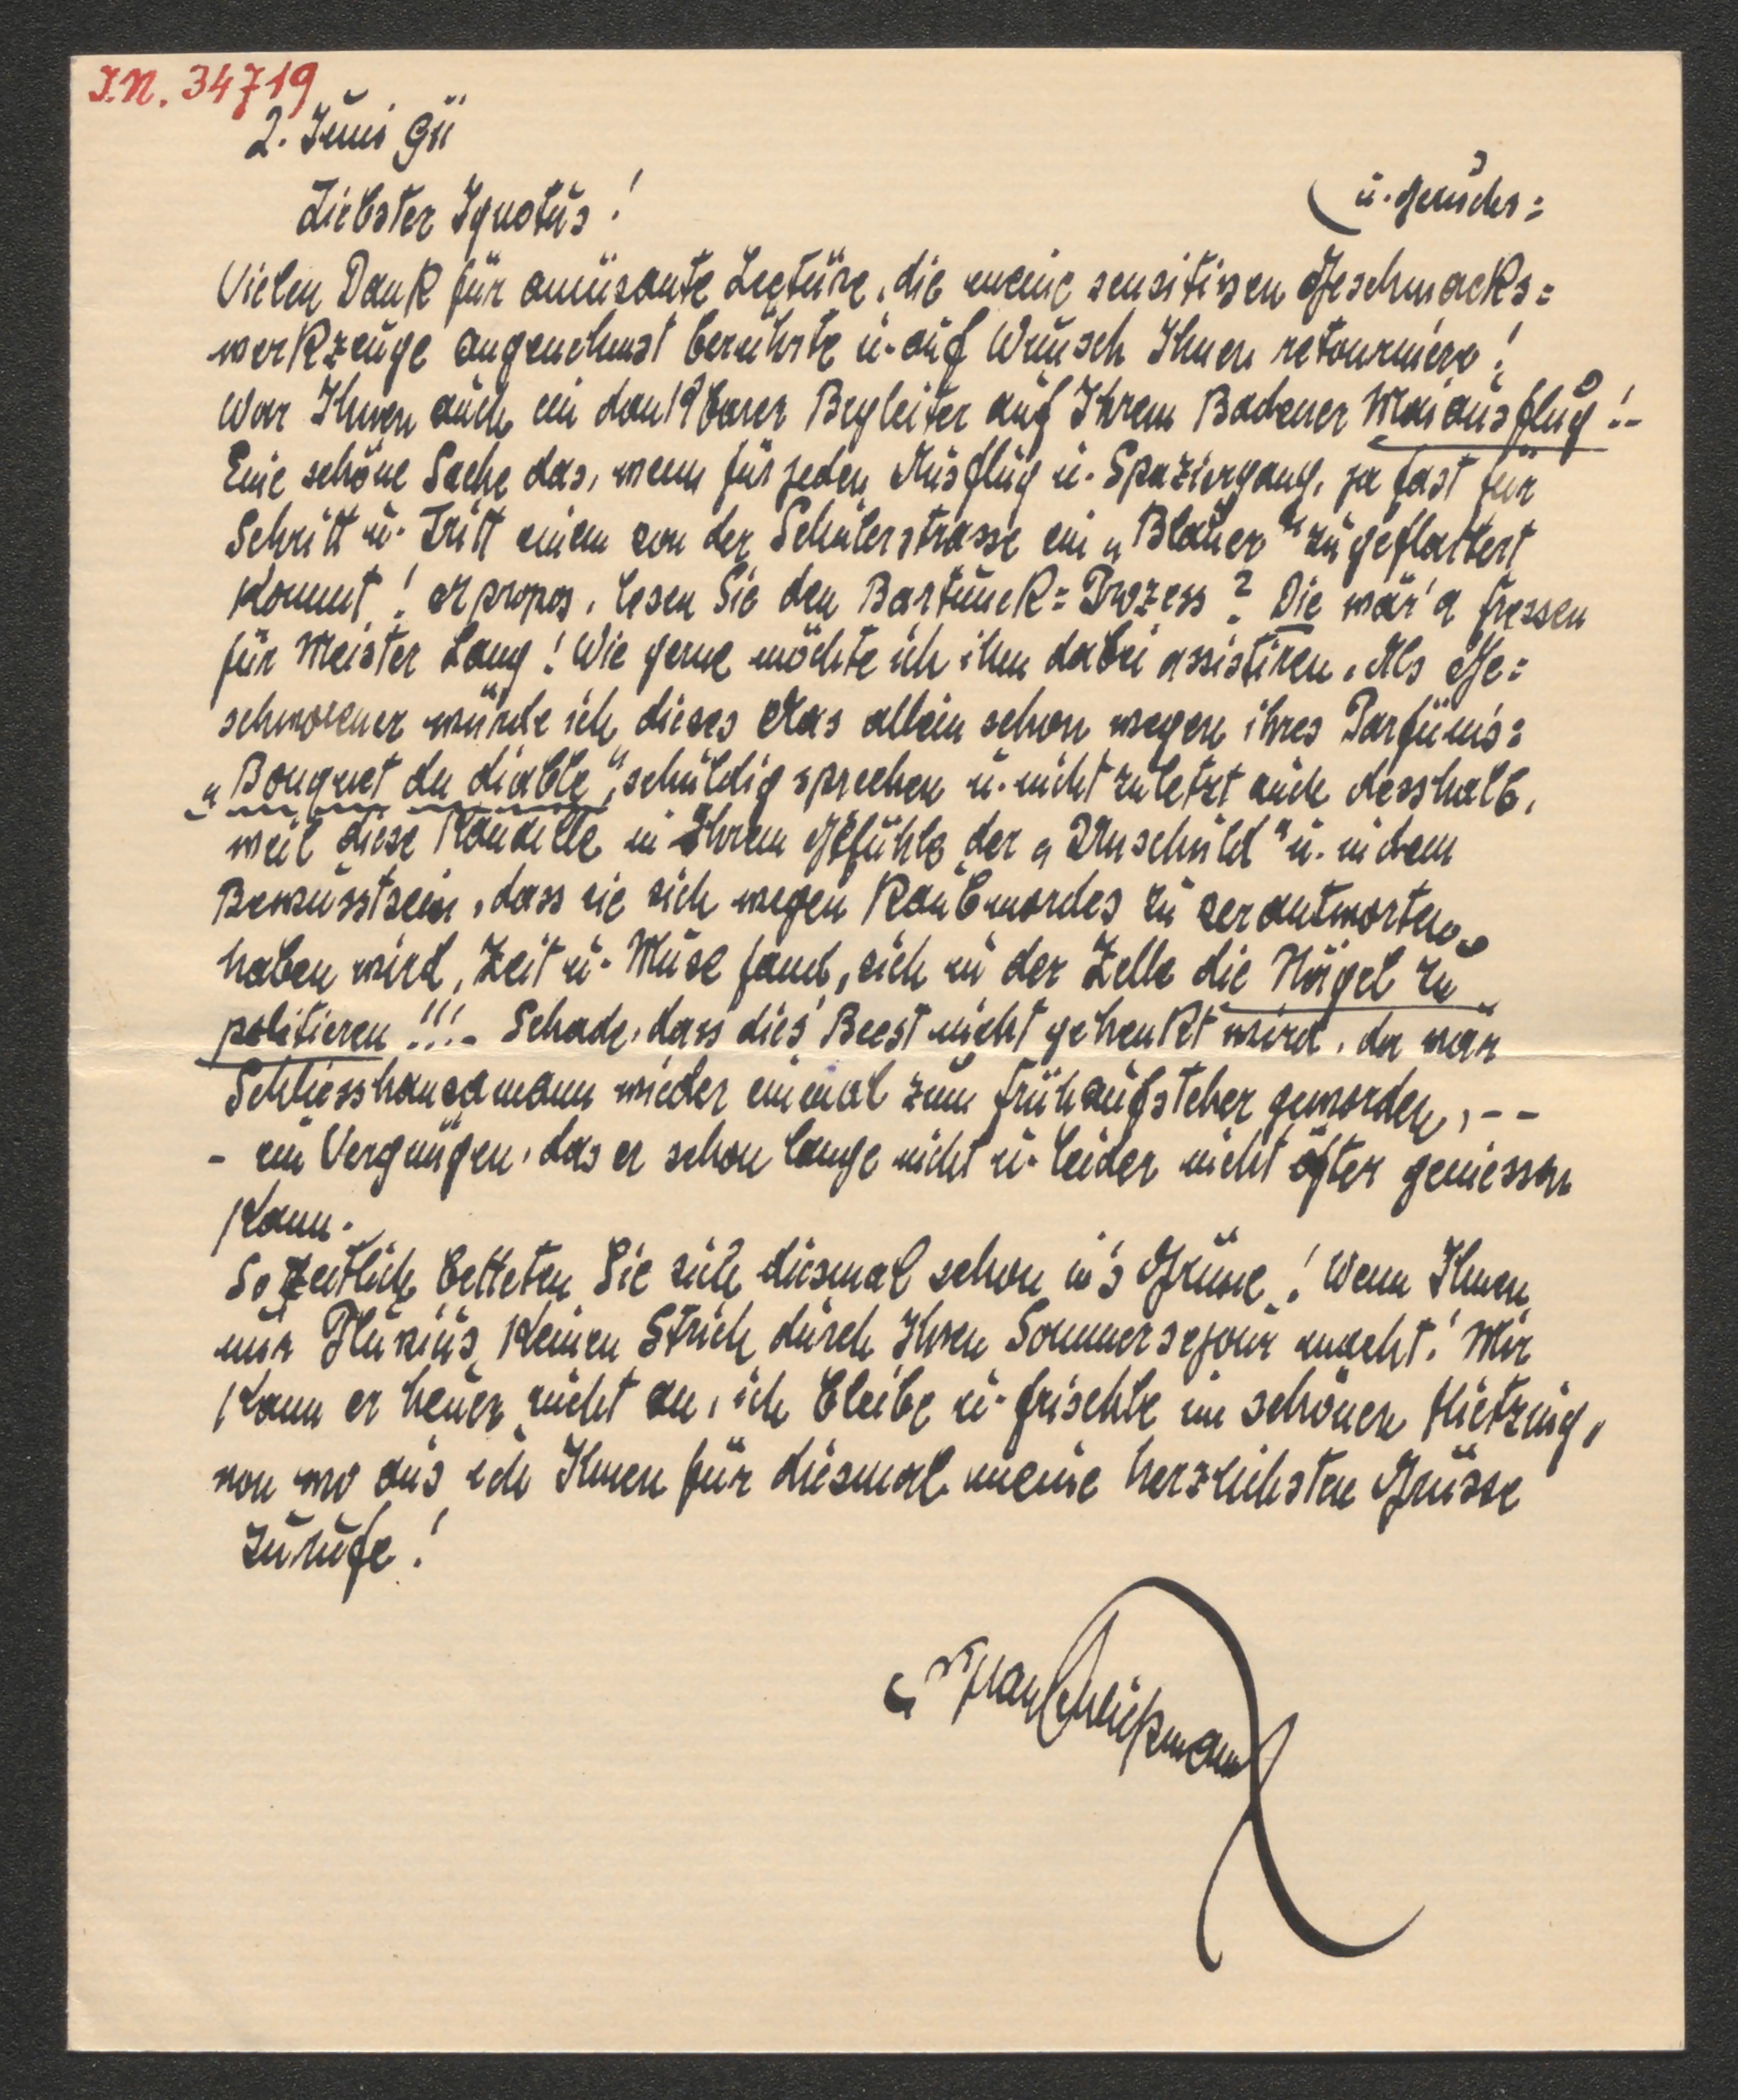 I.N. 34719
2. Juni 911
Liebster Ignotus!
(u. geruchs=
Vielen Dank für amüsante Lectüre, die meine sensitiven Geschmacks=
werkzeuge angenehmst berührte u. auf Wunsch Ihnen retourniere!
War Ihnen auch ein dankbarer Begleiter auf Ihrem Badener Maiausflug!-
Eine schöne Sache das, wenn für jeden Ausflug u. Spaziergang, ja fast für
Schritt u. Tritt einem von der Schulerstrasse ein „Blauer“ zugeflattert
kommt! Apropos, lesen Sie den Bartunek=Prozess? Die wär'a Fressen
für Meister Lang! Wie gerne möchte ich ihm dabei assistiren. Als Ge=
schworener würde ich dieses Aas allein schon wegen ihres Parfüms=
„Bouquet du diable“, schuldig sprechen u. nicht zuletzt auch desshalb,
weil diese Kanaille in Ihrem Gefühle der „Unschuld“ u. in dem
Bewusstsein, dass sie sich wegen Raubmordes zu verantworten
haben wird, Zeit u. Muse fand, sich in der Zelle die Nägel zu
politieren!!!- Schade, dass dies' Beest nicht gehenkt wird, da wär
Schliesshansdmann wieder einmal zum Frühaufsteher geworden, --
- ein Vergnügen, das er schon lange nicht u. leider nicht öfter geniessen
kann.
So zeitlich betteten Sie sich diesmal schon in's Grüne! Wenn Ihnen
nur Pluvius keinen Strich durch Ihren Sommersejour macht! Mir
kann er heuer nicht an, ich bleibe u. frischle im schönen Hietzing,
von wo aus ich Ihnen für diesmal meine herzlichsten Grüsse
zurufe!
Hans Schließmann